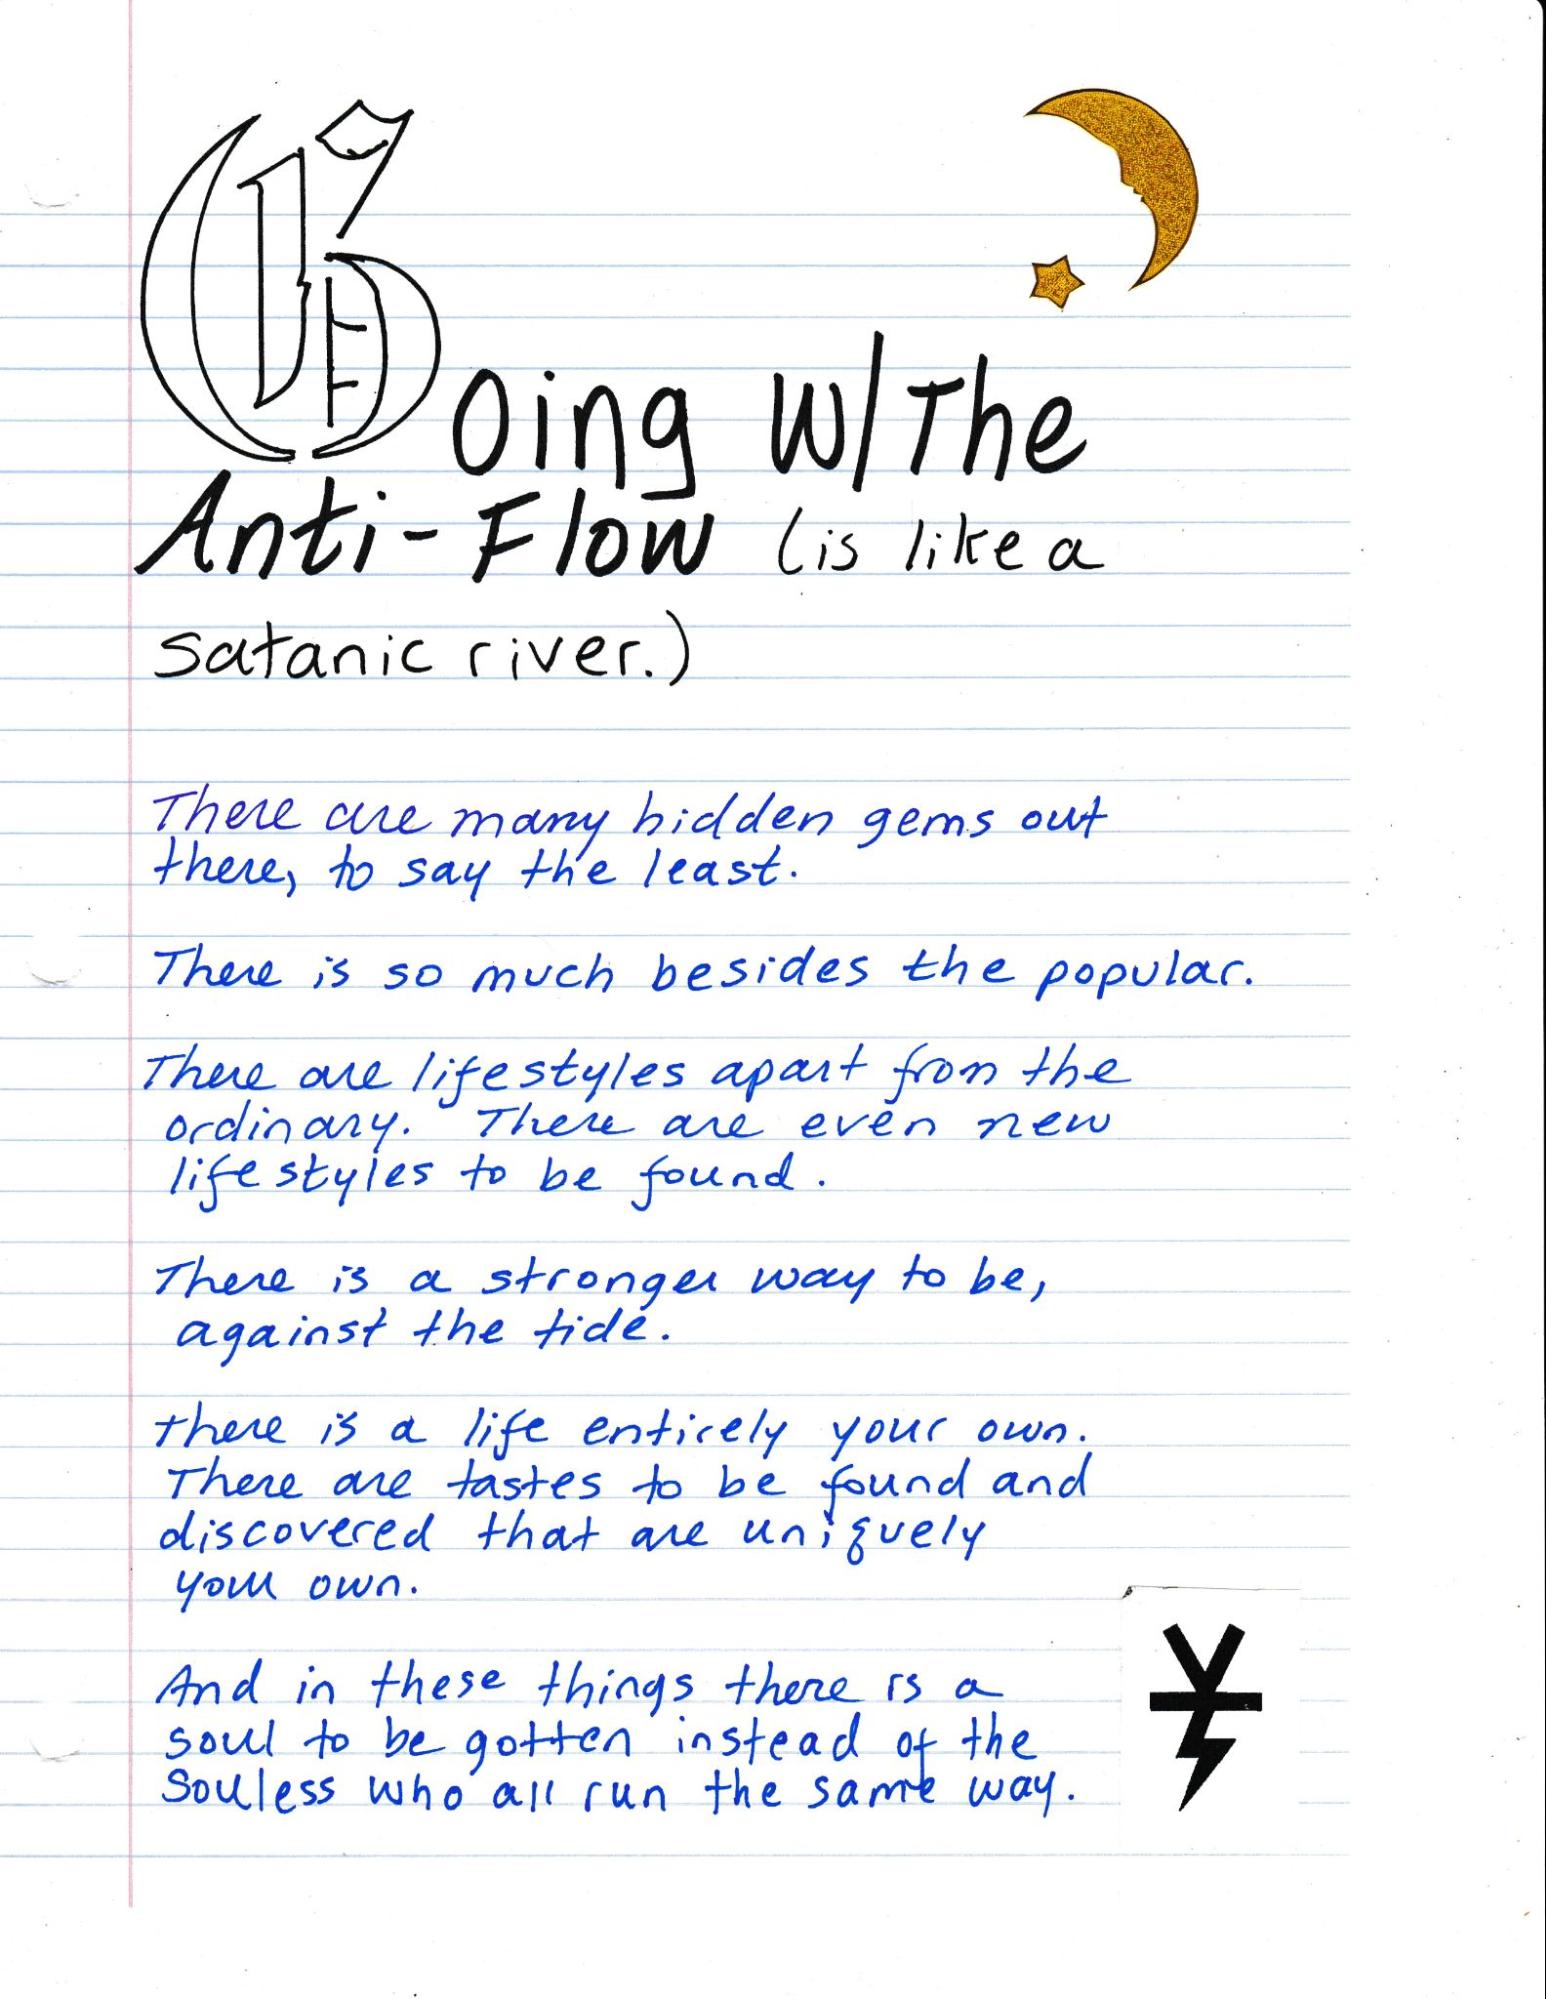 Going W/The
Anti-Flow (is like a
satanic river.)
There are many hidden gems out
there, to say the least.
There is so much besides the popular.
There are lifestyles apart from the
ordinary. There are even new
lifestyles to be found.
There is a stronger way to be,
against the tide.
there is a life entirely your own.
There are tastes to be found and
discovered that are uniquely
your own.
And in these things there is a
soul to be gotten instead of the
Souless who all run the same way.